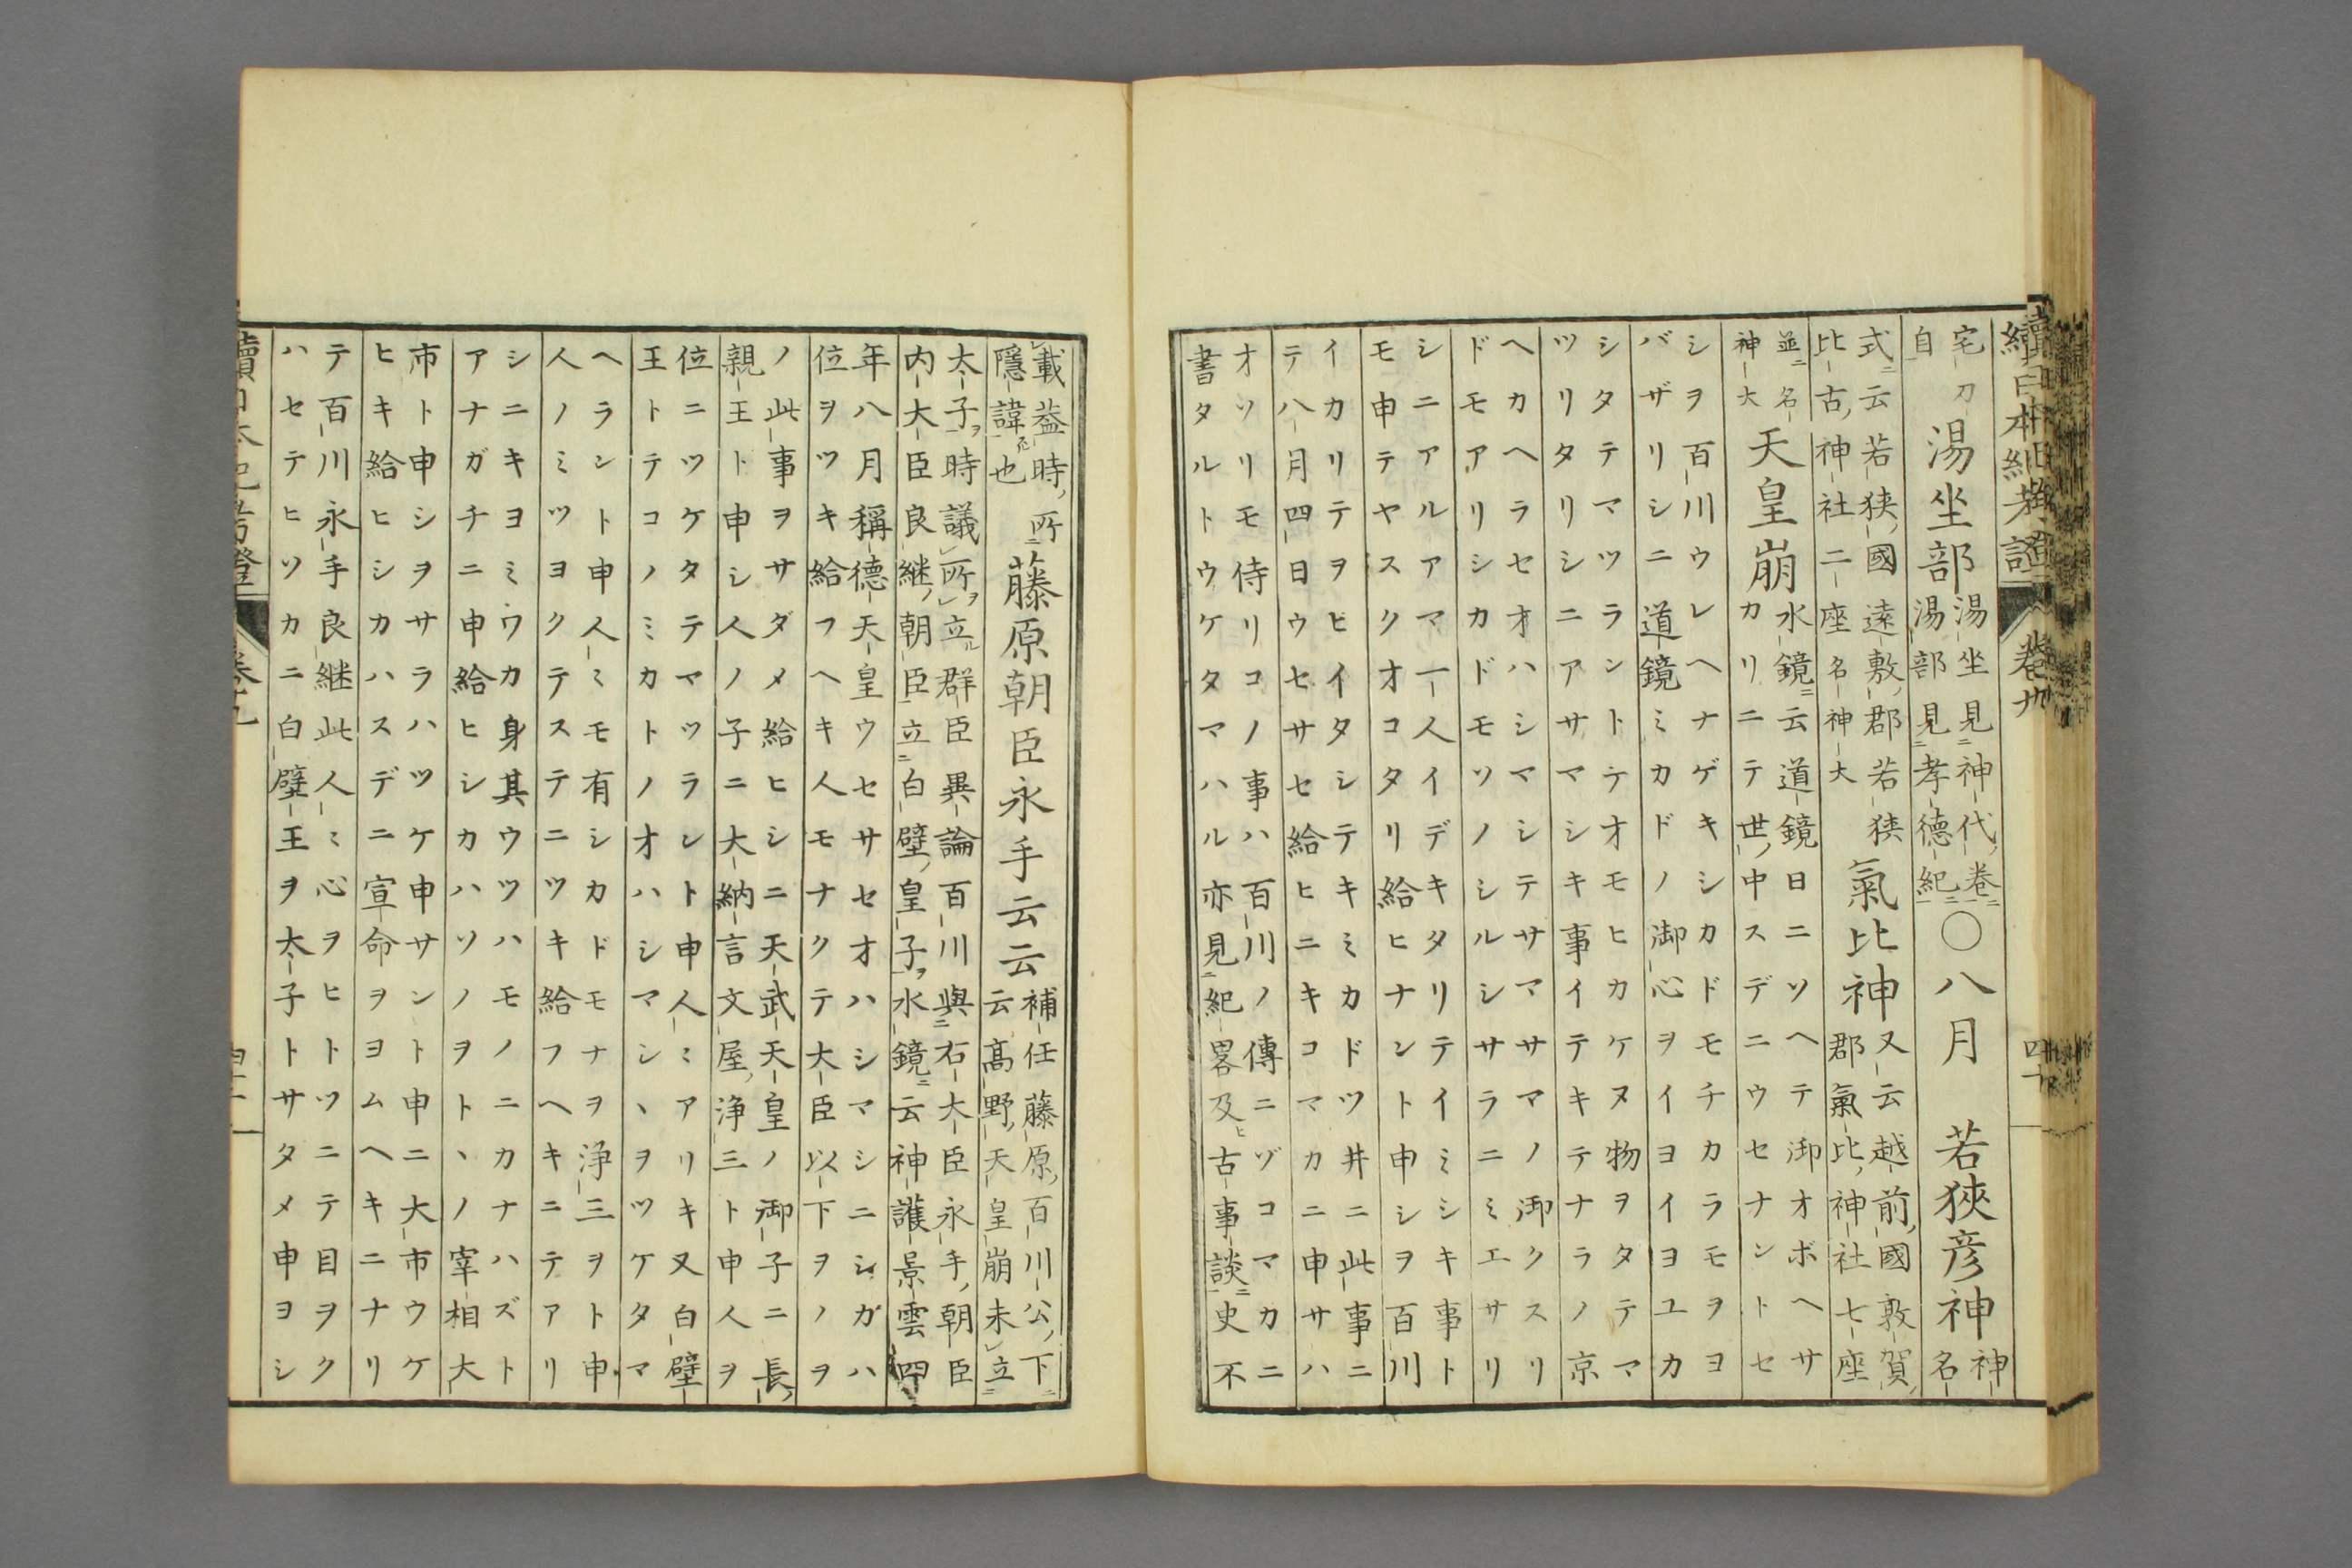 續日本紀考證 卷廿 四十
宅刀
自
湯坐部
湯坐見神代卷
湯部見孝德紀
○八月 若狹彦神
神
名
式云若狹國遠敷郡若狹
比古神社二座名神大
氣比神
又云越前國敦賀
郡氣比神社七座
並名
神大
天皇崩
水鏡云道鏡日ニソヘテ御オボヘサ
カリニテ世中スデニウセナントセ
シヲ百川ウレヘナゲキシカドモチカラモヲヨ
バザリシニ道鏡ミカドノ御心ヲイヨイヨユカ
シタテマツラントテオモヒカケヌ物ヲタテマ
ツリタリシニアサマシキ事イテキテナラノ京
ヘカヘラセオハシマシテサマサマノ御クスリ
ドモアリシカドモソノシルシサラニミエサリ
シニアルアマ一人イデキタリテイミシキ事ト
モ申テヤスクオコタリ給ヒナント申シヲ百川
イカリテヲヒイタシテキミカドツ井ニ此事ニ
テ八月四日ウセサセ給ヒニキコマカニ申サハ
オソリモ侍リコノ事ハ百川ノ傳ニゾコマカニ
書タルトウケタマハル亦見紀畧及古事談史不
載益時所
隱諱也
藤原朝臣永手云云
補任藤原百川公下
云高野天皇崩未立
太子時議所立群臣異論百川與右大臣永手朝臣
内大臣良継朝臣立白壁皇子水鏡云神護景雲四
年八月稱德天皇ウセサセオハシマシニシガハ
位ヲツキ給フヘキ人モナクテ大臣以下ヲノヲ
ノ此事ヲサダメ給ヒシニ天武天皇ノ御子ニ長
親王ト申シ人ノ子ニ大納言文屋浄三ト申人ヲ
位ニツケタテマツラント申人〻アリキ又白壁
王トテコノミカトノオハシマシヽヲツケタマ
ヘラント申人〻モ有シカドモナヲ浄三ヲト申
人ノミツヨクテステニツキ給フヘキニテアリ
シニキヨミワカ身其ウツハモノニカナハズト
アナガチニ申給ヒシカハソノヲトヽノ宰相大
市ト申シヲサラハツケ申サント申ニ大市ウケ
ヒキ給ヒシカハスデニ宣命ヲヨムヘキニナリ
テ百川永手良継此人〻心ヲヒトツニテ目ヲク
ハセテヒソカニ白壁王ヲ太子トサタメ申ヨシ